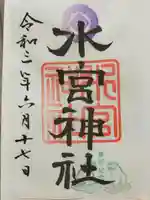 水宮神社
令和二年六月十七日